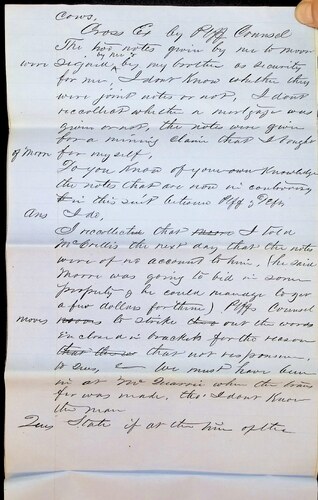 Cows,
Cross Ex by Plff Counsel
The two notes given by me to moon
by me &
were signed by my brother as security
for me, I dont Know whether they
were joint notes or not, I dont
recollect whether a mortgage was
given or not, the notes were given
for a mining claim that I bought
of Moon for my self,
Do you Know of your own Knowledge
the notes that are now in controversy
in this suit between Plff & Deft
Ans I do,
I recollected that I told
McCollis the next day that the notes
were of no account to him, (he said
Moore was going to bid in some
property & he could manage to get
a few dollars for them) Plffs Counsel
moves to strike out the words
Enclosed in brackets for the reason
that not responsive,
to ques, & We must have been
in at when the trans
fer was made, tho' I dont Know
the man
Ques State if at the time of the